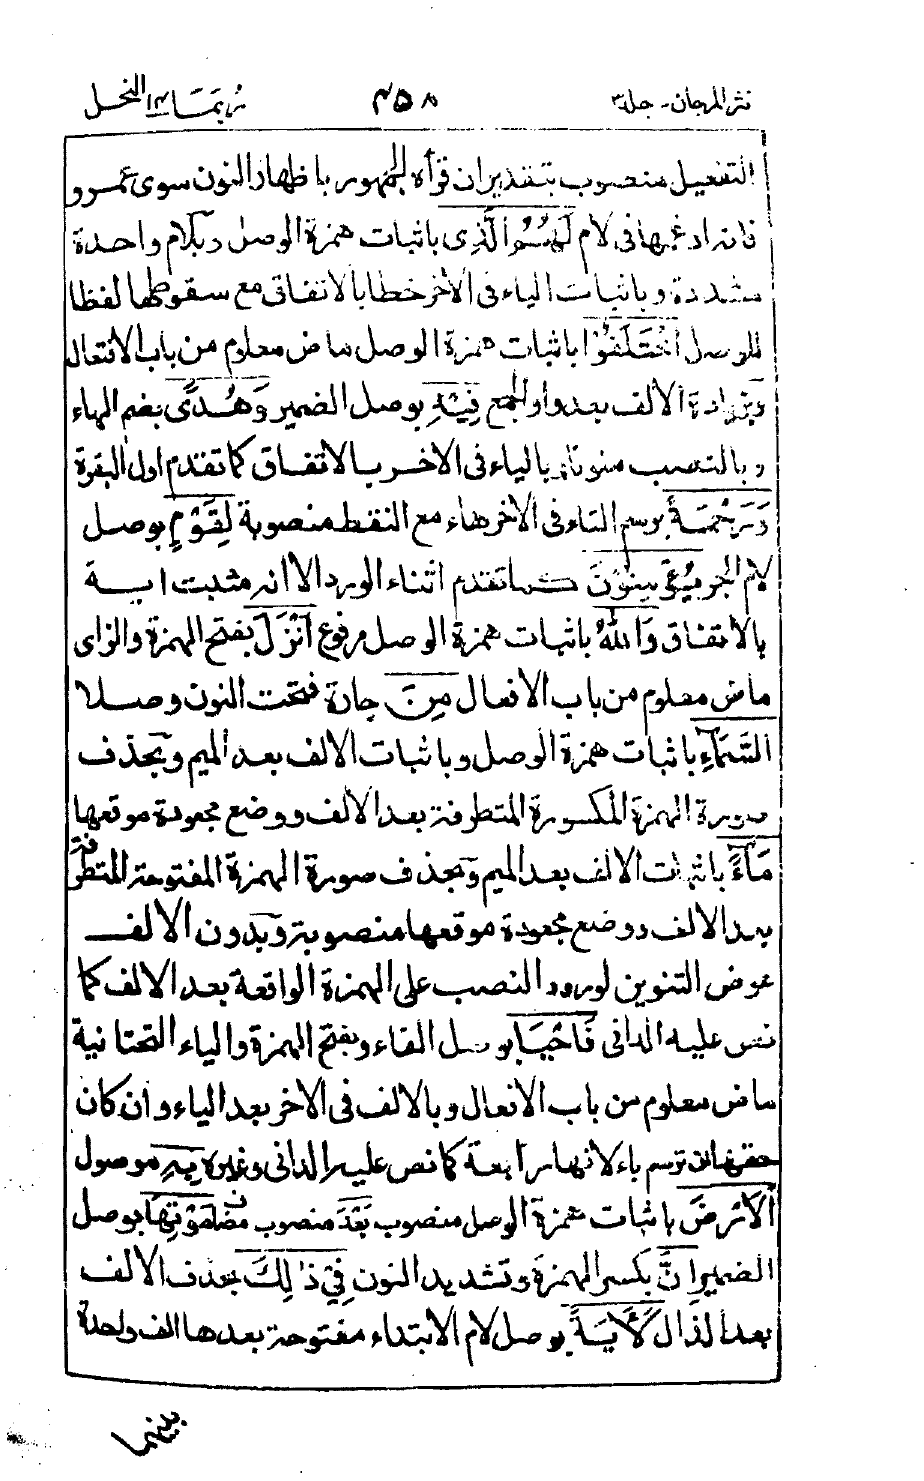 نثر المرجان - جلد٣ ٤٥٨ ربما ١٤ النحل
التفعيل منصوب بتقدير ان قرأه الجمهور باظهار النون سوى عمرو
فانه ادغمها فى لام لَهُمُ الَّذِى باثبات همزة الوصل وبلام واحدة
مشددة وباثبات الياء فى الأخر خطا بالاتفاق مع سقوطها لفظا
للوصل اخْتَلَفُوْا باثبات همزة الوصل ماض معلوم من باب الافتعال
وبزيادة الألف بعد واو الجمع فِيْهِ بوصل الضمير وَهُدًى بضم الهاء
وبالنصب منونا وبالياء فى الاخر بالاتفاق كما تقدم اول البقرة
وَرَحْمَةً برسم التاء فى الأخر هاء مع النقط منصوبة لِقَوْمٍ بوصل
لام الجر يُؤْمِنُوْنَ كما تقدم اثناء الورد الا انه مثبت اية
بالاتفاق وَاللهُ باثبات همزة الوصل مرفوع اَنْزَلَ بفتح الهمزة والزاى
ماض معلوم من باب الافعال مِنَ جارة فتحت النون وصلا
السَّمَآءِ باثبات همزة الوصل وباثبات الالف بعد الميم وبحذف
صورة الهمزة المكسورة المتطرفة بعد الألف ووضع مجعودة موقعها
مَآءً باثبات الالف بعد الميم وبحذف صورة الهمزة المفتوحة المتطرفة
بعد الالف ووضع مجعودة موقعها منصوبة وبدون الألف
عوض التنوين لورود النصب على الهمزة الواقعة بعد الالف كما
نص عليه الدانى فَاَحْيَا بوصل الفاء وبفتح الهمزة والياء التحتانية
ماض معلوم من باب الافعال وبالالف فى الاخر بعد الياء وان كان
حقها ان ترسم ياء لانها رابعة كما نص عليه الدانى وغيره بِهِ موصول
الْاَرْضَ باثبات همزة الوصل منصوب بَعْدَ منصوب مضاف مَوْتِهَا بوصل
الضمير اِنَّ بكسر الهمزة وتشديد النون فِيْ ذٰلِكَ بحذف الالف
بعد الذال لَاٰيَةً بوصل لام الابتداء مفتوحة بعدها الف واحدة
بينهما